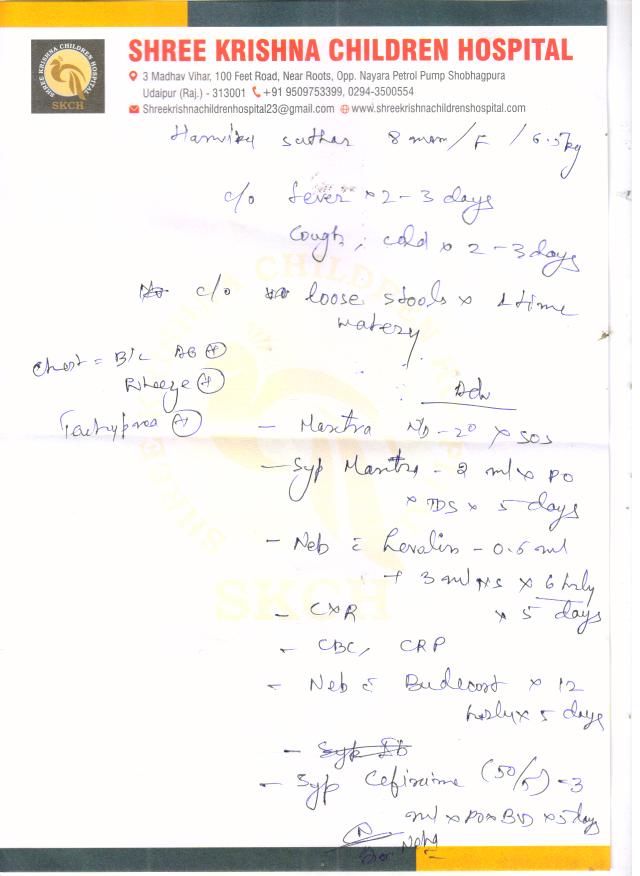 SHREE KRISHNA CHILDREN HOSPITAL
SHREE KRISHNA CHILDREN HOSPITAL
SKCH
3 Madhav Vihar, 100 Feet Road, Near Roots, Opp. Nayara Petrol Pump Shobhagpura
Udaipur (Raj.) - 313001 +91 9509753399, 0294-3500554
Shreekrishnachildrenhospital23@gmail.com www.shreekrishnachildrenshospital.com
suthar 8 mon/F / 6.5kg
c/o fever × 2-3 days
Cough, cold × 2-3 days
c/o loose stools × 1 time
watery
Chest = B/L AE (+)
Wheeze (+)
Tachypnoea (+)
Adv
- N/D - 2° × SOS
- Syp - 2 ml × PO
× TDS × 5 days
- Neb c̄ Levolin - 0.5 ml
+ 3 ml NS × 6 hrly
× 5 days
- CXR
- CBC, CRP
- Neb c̄ Budecort × 12
hrly × 5 days
- Syp
- Syp Cefixime (50/5) - 3
ml × PO × BD × 5 days
SHREE KRISHNA CHILDREN HOSPITAL
SKCH